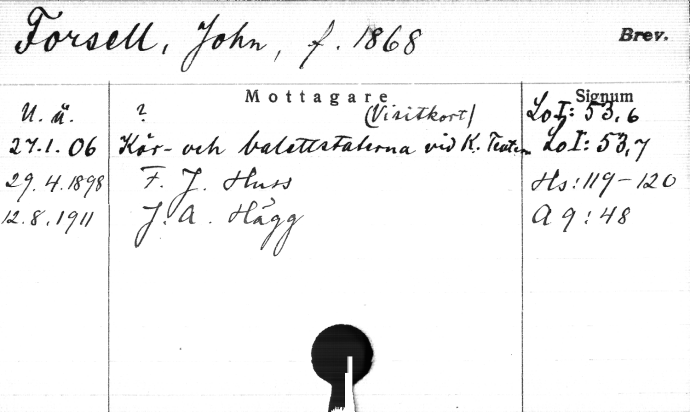 Forsell, John, f. 1868 Brev.
Mottagare Signum
U. å. ? (Visitkort) Lo I: 53,6
27.1.06 Kör- och balettstaterna vid K. Teatern Lo I: 53,7
29.4.1898 F. J. Huss Hs: 119-120
12.8.1911 J. A. Hägg A 9: 48